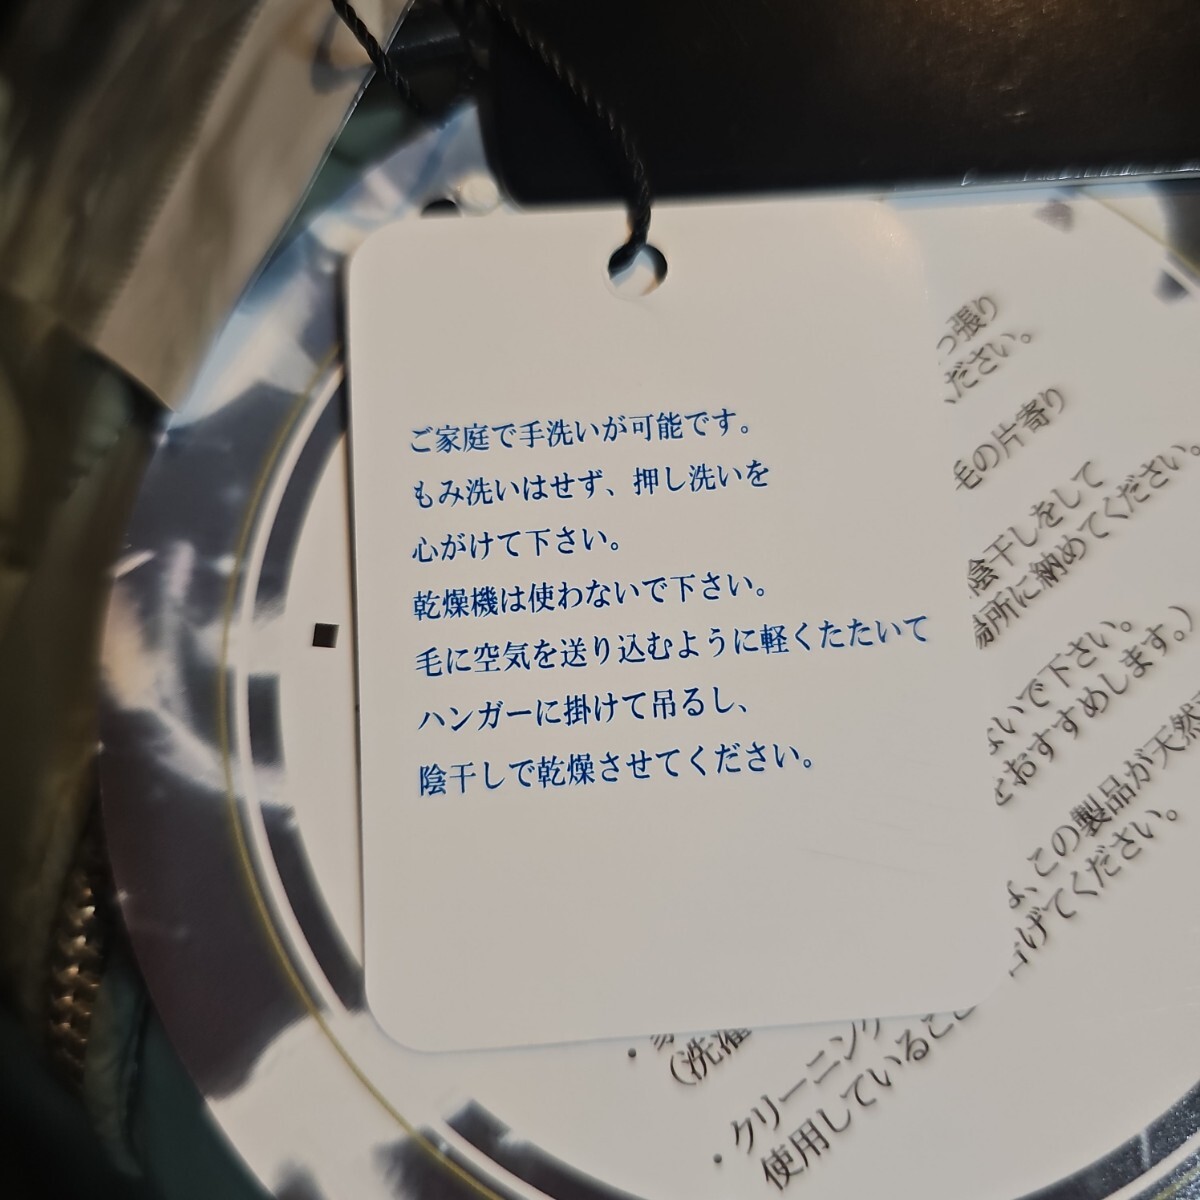 ご家庭で手洗いが可能です。
もみ洗いはせず、押し洗いを
心がけて下さい。
乾燥機は使わないで下さい。
毛に空気を送り込むように軽くたたいて
ハンガーに掛けて吊るし、
陰干しで乾燥させてください。
っ張り
ください。
毛の片寄り
陰干しをして
場所に納めてください。
ないで下さい。
おすすめします。)
この製品が天然
げてください。
(洗濯
・クリーニング
使用していること